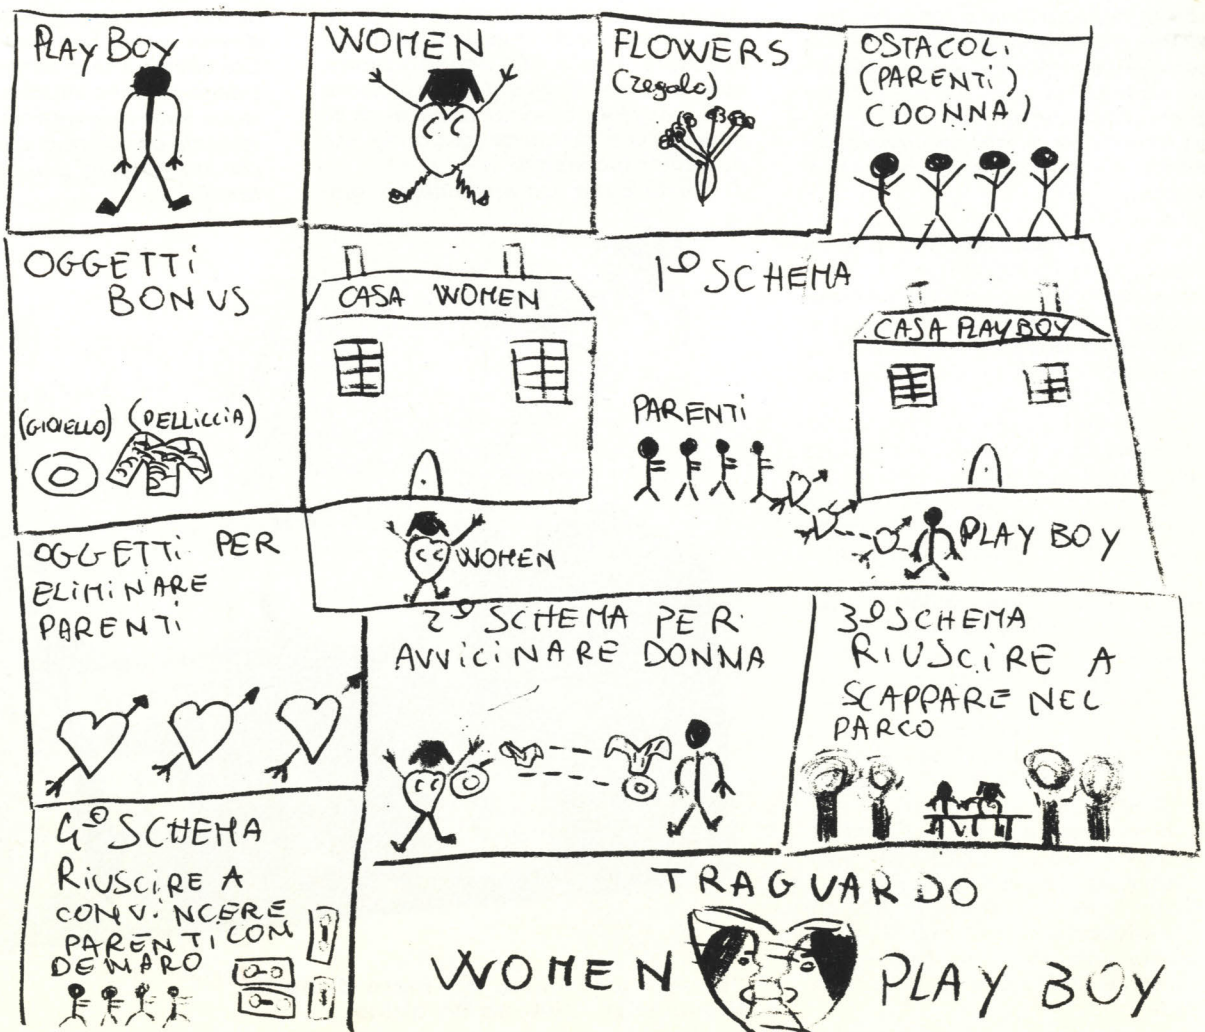 PLAY BOY
WOMEN
FLOWERS
(regalo)
OSTACOLi
(PARENTi)
(DONNA)
OGGETTi
BONUS
(GIOiELLO) (PELLiCCiA)
CASA WOMEN
1º SCHEMA
CASA PLAY BOY
PARENTi
WOMEN
PLAY BOY
OGGETTi PER
ELiMiNARE
PARENTi
2º SCHEMA PER
AVViCiNARE DONNA
3º SCHEMA
RiUSCiRE A
SCAPPARE NEL
PARCO
4º SCHEMA
RiUSCiRE A
CONViNCERE
PARENTi CON
DENARO
TRAGUARDO
WOMEN
PLAY BOY